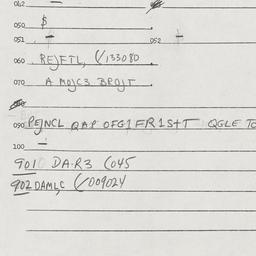 042 —
050 $
051 — 052 —
060 REJFTL, (/133080
070 A MOJC3 BROJT
090 PEJNCL QAP OFG1FR1S+T QGLE TO
100 —
901 DA.R3 (045
902 DAMLC (/009024